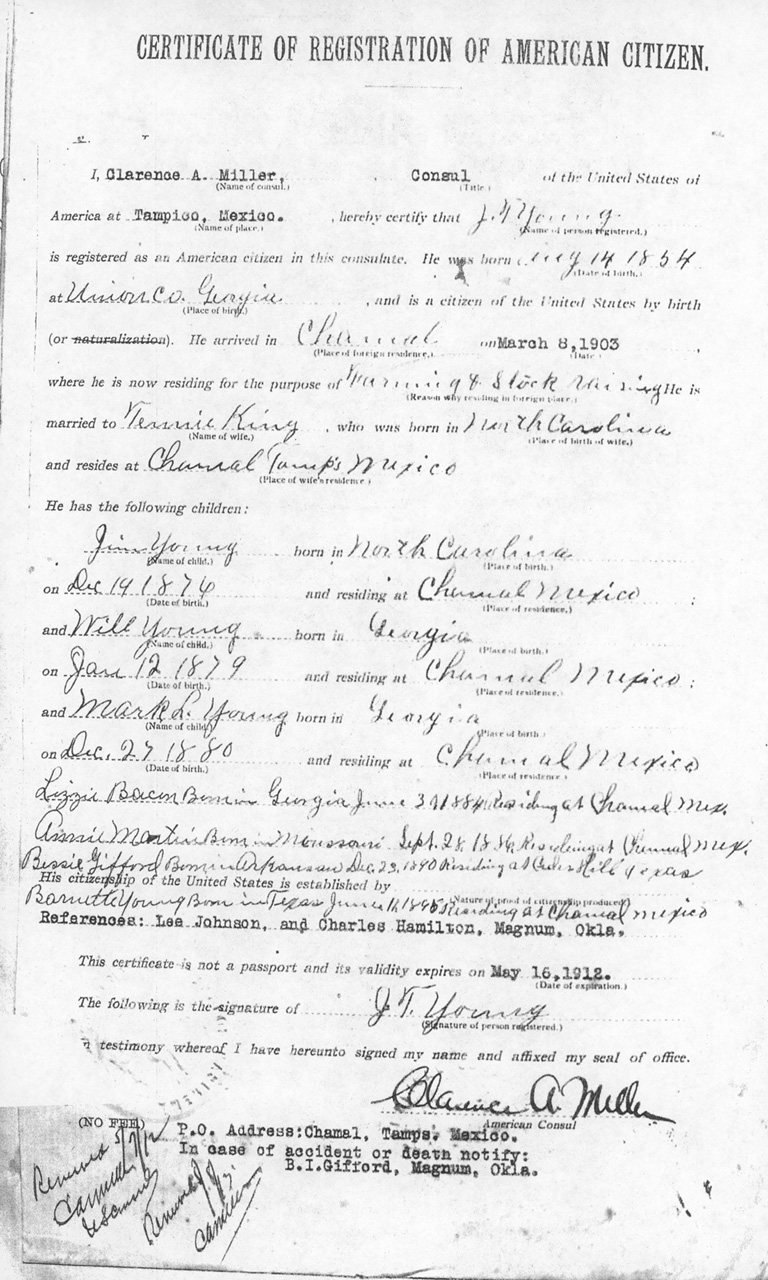 CERTIFICATE OF REGISTRATION OF AMERICAN CITIZEN.
I, Clarence A. Miller, Consul of the United States of
(Name of consul.) (Title.)
America at Tampico, Mexico. , hereby certify that J. T Young
(Name of place.) (Name of person registered.)
is registered as an American citizen in this consulate. He was born 14 1854
(Date of birth.)
at Union Co. Georgia , and is a citizen of the United States by birth
(Place of birth.)
(or naturalization). He arrived in Chamal on March 8,1903 ,
(Place of foreign residence.) (Date.)
where he is now residing for the purpose of Farming & Stock raising He is
(Reason why residing in foreign place.)
married to Tennie King , who was born in North Carolina
(Name of wife.) (Place of birth of wife.)
and resides at Chamal Tamp's Mexico
(Place of wife's residence.)
He has the following children:
Jim Young born in North Carolina
(Name of child.) (Place of birth.)
on Dec 19 1876 and residing at Chamal Mexico ;
(Date of birth.) (Place of residence.)
and Will Young born in Georgia
(Name of child.) (Place of birth.)
on Jan 12 1879 and residing at Chamal Mexico ;
(Date of birth.) (Place of residence.)
and Mark L. Young born in Georgia
(Name of child) (Place of birth.)
on Dec. 27 1880 and residing at Chamal Mexico
(Date of birth.) (Place of residence.)
Lizzie Bacon Born in Georgia June 3 1884 Residing at Chamal Mex.
Annie Martin Born in Moussouri Sept. 28 1886 Residing at Chamal Mex.
Bessie Gifford Born in Arkansaw Dec. 23, 1890 Residing at Hill Texas
His citizenship of the United States is established by
(Nature of proof of citizenship produced)
Barnette Young Born in Texas June 11, 1895 Residing at Chamal Mexico
References: Lee Johnson, and Charles Hamilton, Magnum, Okla.
This certificate is not a passport and its validity expires on May 16,1912.
(Date of expiration.)
The following is the signature of J. T. Young
(Signature of person registered.)
testimony whereof I have hereunto signed my name and affixed my seal of office.
Clarence A. Miller
American Consul
(NO FEE)
P.O. Address:Chamal, Tamps. Mexico.
In case of accident or death notify:
B.I.Gifford, Magnum, Okla.
Renewed
Renewed